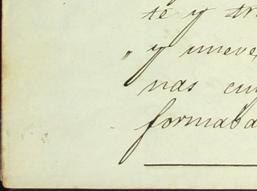 te y tr
" y nueve,
nas cu
formaba